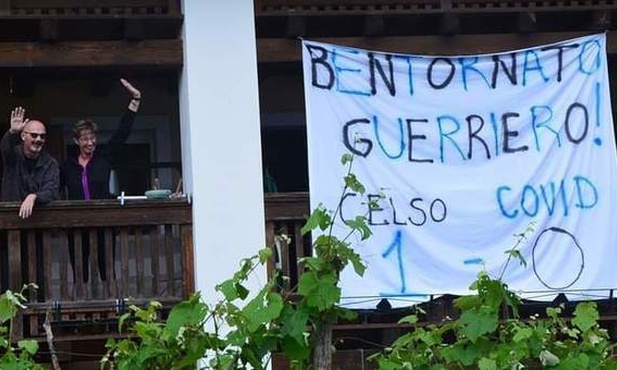 BENTORNATO
GUERRIERO!
CELSO COVID
1 - 0